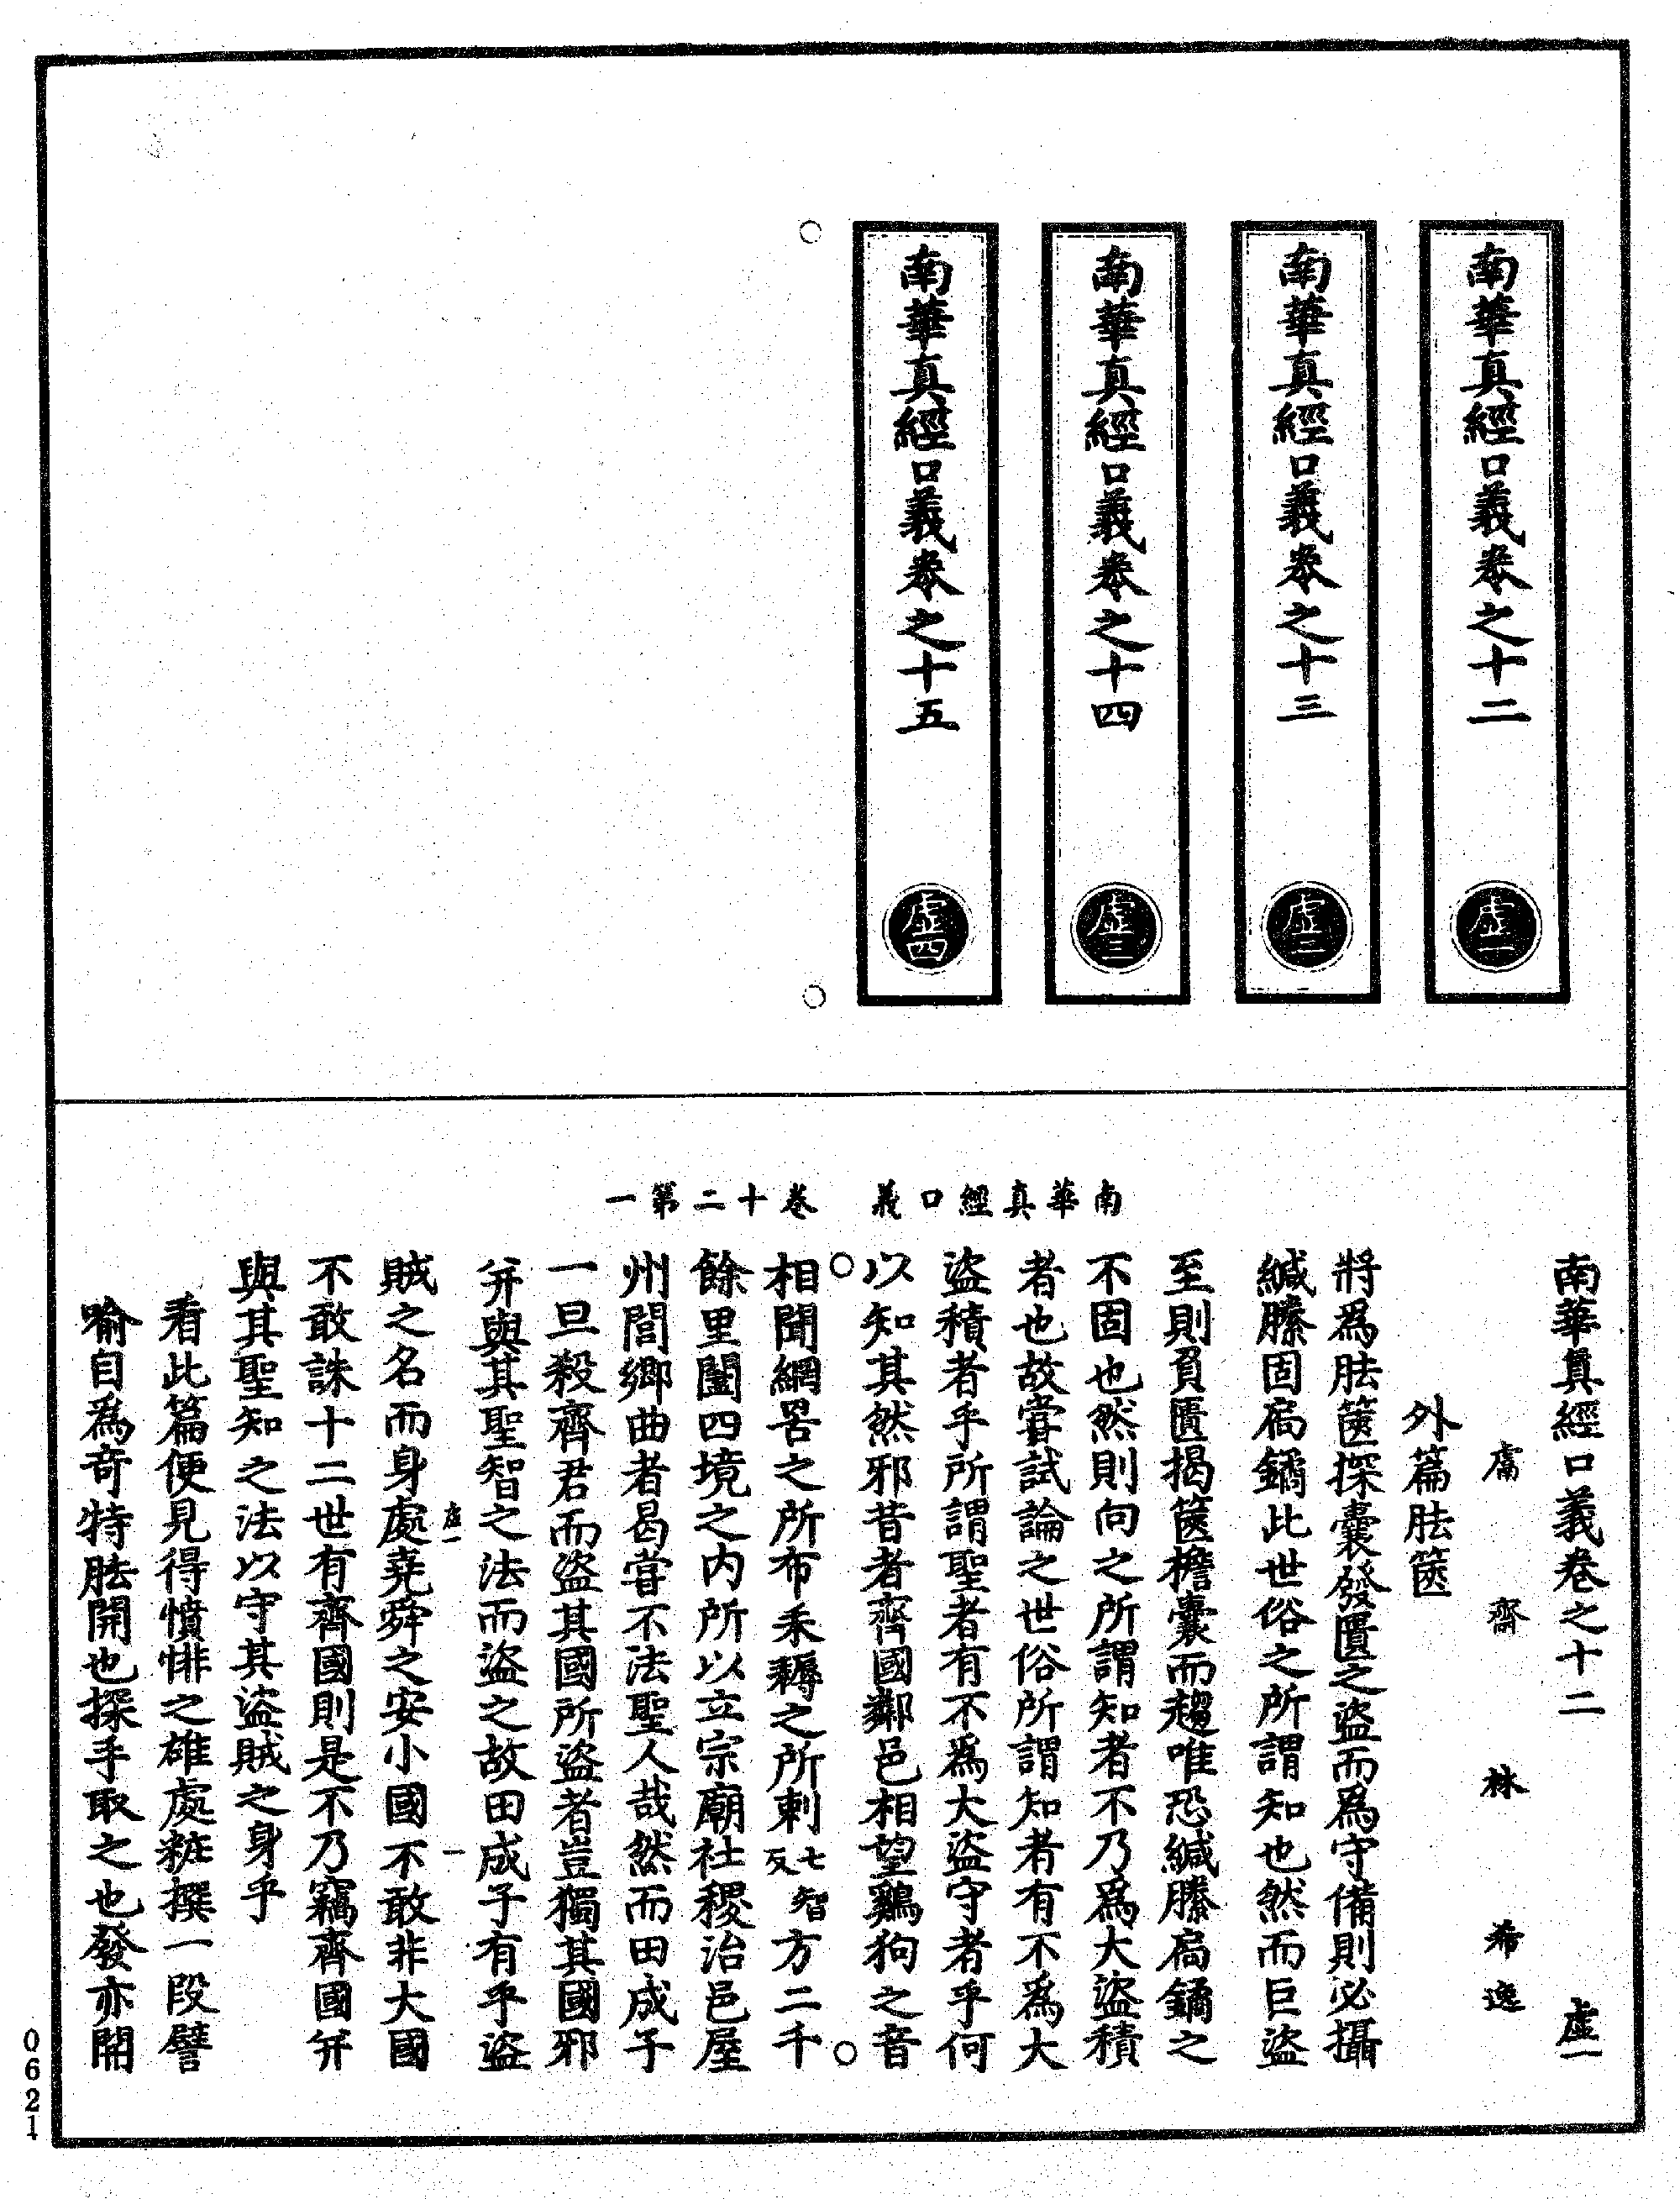 南華真經口義卷之十二
虛一
南華真經口義卷之十三
虛二
南華真經口義卷之十四
虛三
南華真經口義卷之十五
虛四
南華真經口義　卷十二第一
南華眞經口義卷之十二　虛一
鬳齋林希逸
外篇胠篋
將爲胠篋探囊發匱之盜而爲守備則必攝
緘縢固扃鐍此世俗之所謂知也然而巨盜
至則負匱揭篋擔囊而趨唯恐緘縢扃鐍之
不固也然則向之所謂知者不乃爲大盜積
者也故嘗試論之世俗所謂知者有不爲大
盜積者乎所謂聖者有不爲大盜守者乎何
以知其然邪昔者齊國鄰邑相望鷄狗之音
相聞網罟之所布耒耨之所刺七智反方二千
餘里闔四境之内所以立宗廟社稷治邑屋
州閭鄉曲者曷嘗不法聖人哉然而田成子
一旦殺齊君而盜其國所盜者豈獨其國邪
并與其聖智之法而盜之故田成子有乎盜
虛一　一
賊之名而身處堯舜之安小國不敢非大國
不敢誅十二世有齊國則是不乃竊齊國并
與其聖知之法以守其盜賊之身乎
看此篇便見得憤悱之雄處粧撰一段譬
喻自爲奇特胠開也探手取之也發亦開
0621